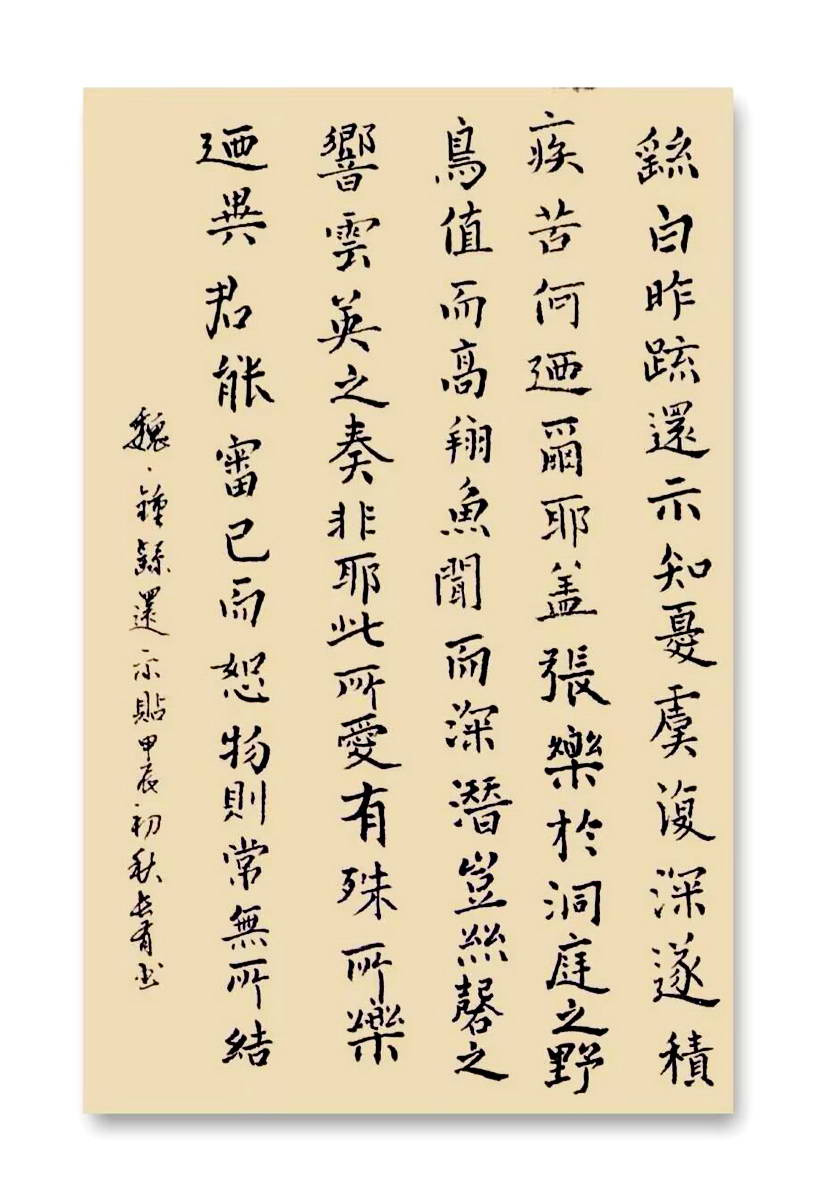 繇白昨疏還示知憂虞復深遂積
疾苦何迺爾耶盖張樂於洞庭之野
鳥值而高翔魚聞而深潛豈絲磬之
響雲英之奏非耶此所愛有殊所樂
迺異君能審己而恕物則常無所結
魏、鍾繇還示貼甲辰初秋书